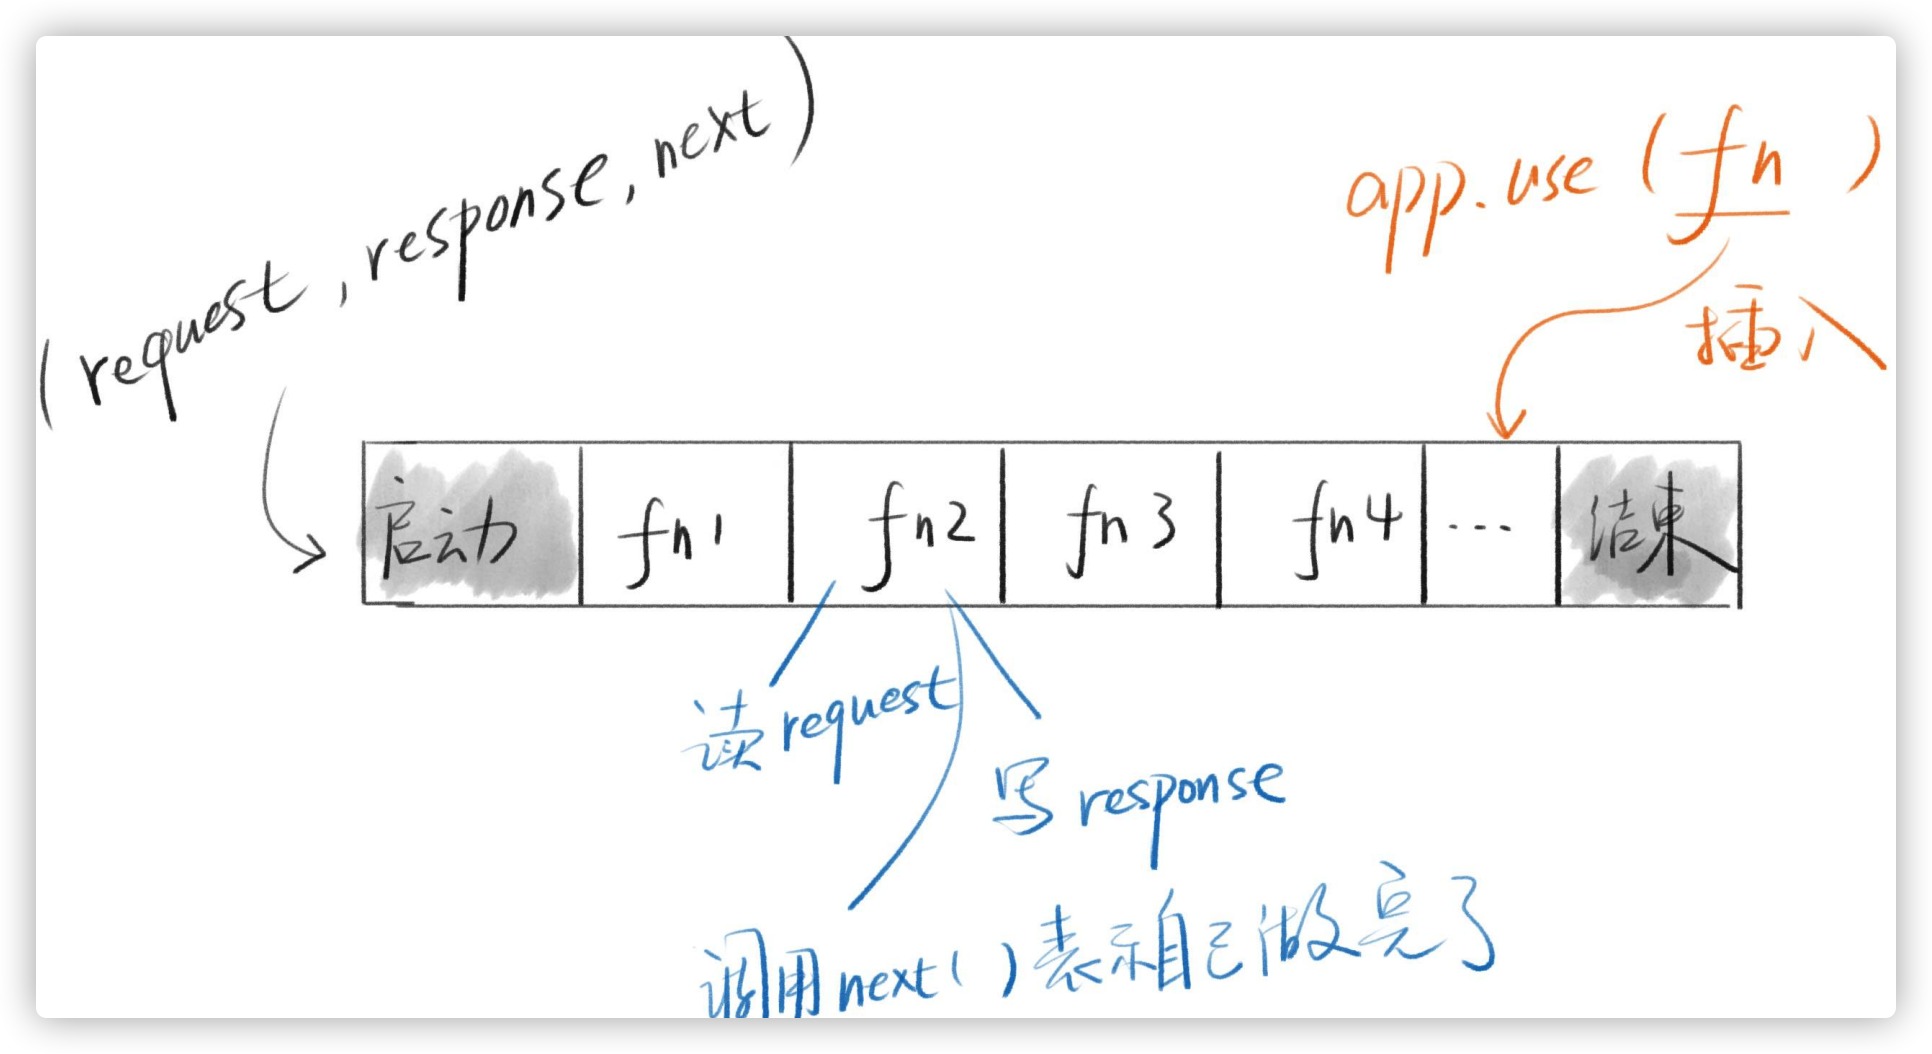 (request, response, next)
app.use(fn )
插入
启动 fn1 fn2 fn3 fn4 ... 结束
读request
写response
调用next()表示自己做完了